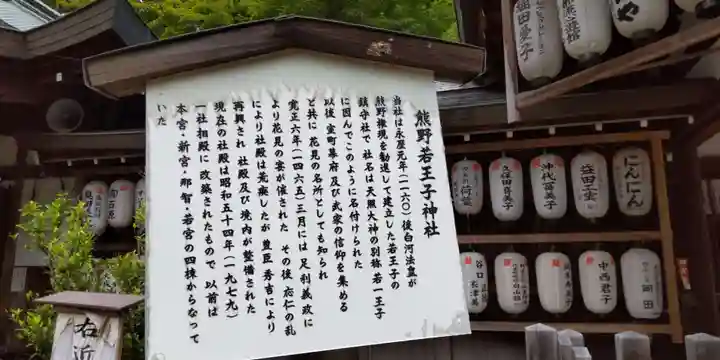 熊野若王子神社
当社は永暦元年(一一六〇)後白河法皇が
熊野権現を勧進して建立した若王子の
鎮守社で 社名は天照大神の別称 若一王子
に因んでこのように名付けられた
以後 室町幕府及び武家の信仰を集める
と共に 花見の名所としても知られ
寛正六年(一四六五)三月には 足利義政に
より花見の宴が催された その後 応仁の乱
により社殿は荒廃したが 豊臣秀吉により
再興され 社殿及び境内が整備された
現在の社殿は昭和五十四年(一九七九)
一社相殿に 改築されたもので 以前は
本宮・新宮・那智・若宮の四棟からなって
いた
にんにん
益田工業
沖代喜美子
久保田真美子
岡田
中西君子
右近